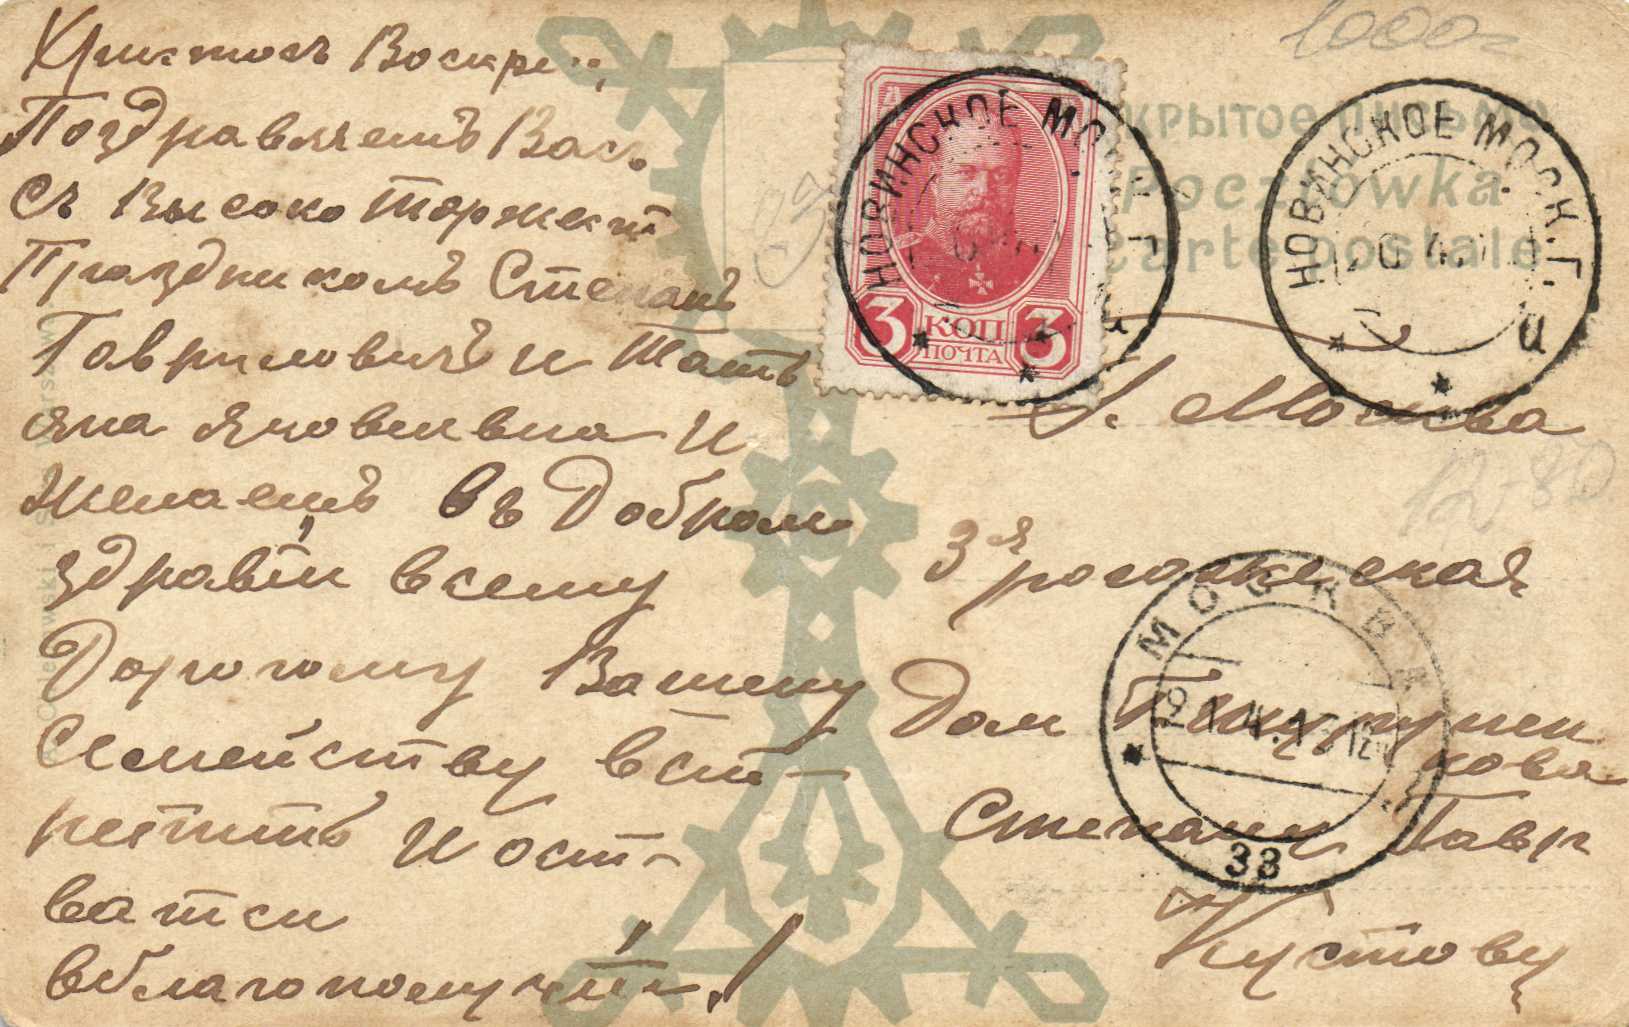 Христосъ Воскресе,
Поздравляемъ Васъ
Съ Высоко Торжест
Праздникомъ Степанъ
Гавриловичъ и Тать
яна Яковлевна И
желаемъ въ Добром
здравіи всему
Дорогому Вашему
Семейству вст-
ретить И ост-
ватси
вблагополучіи!
1000
КРЫТОЕ ПИСЬМО
Pocztówka
Carte postale
3 КОП 3
ПОЧТА
НОВИНСКОЕ МОСК. Г.
НОВИНСКОЕ МОСК. Г.
г. Москва
12-80
3я рогожская
Дом
Степану Гавр
Кустову
МОСКВА
33